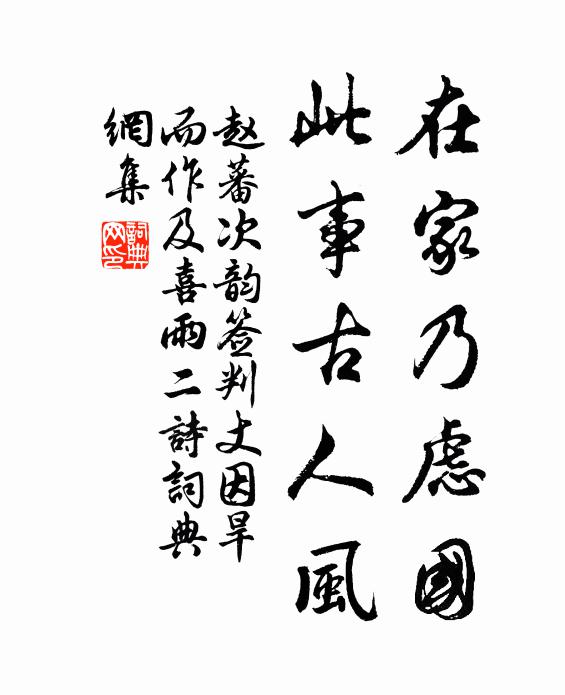 在家乃慮國
此事古人風
赵蕃次韵签判丈因旱
而作及喜雨二詩詞典
網集
詞典
网印